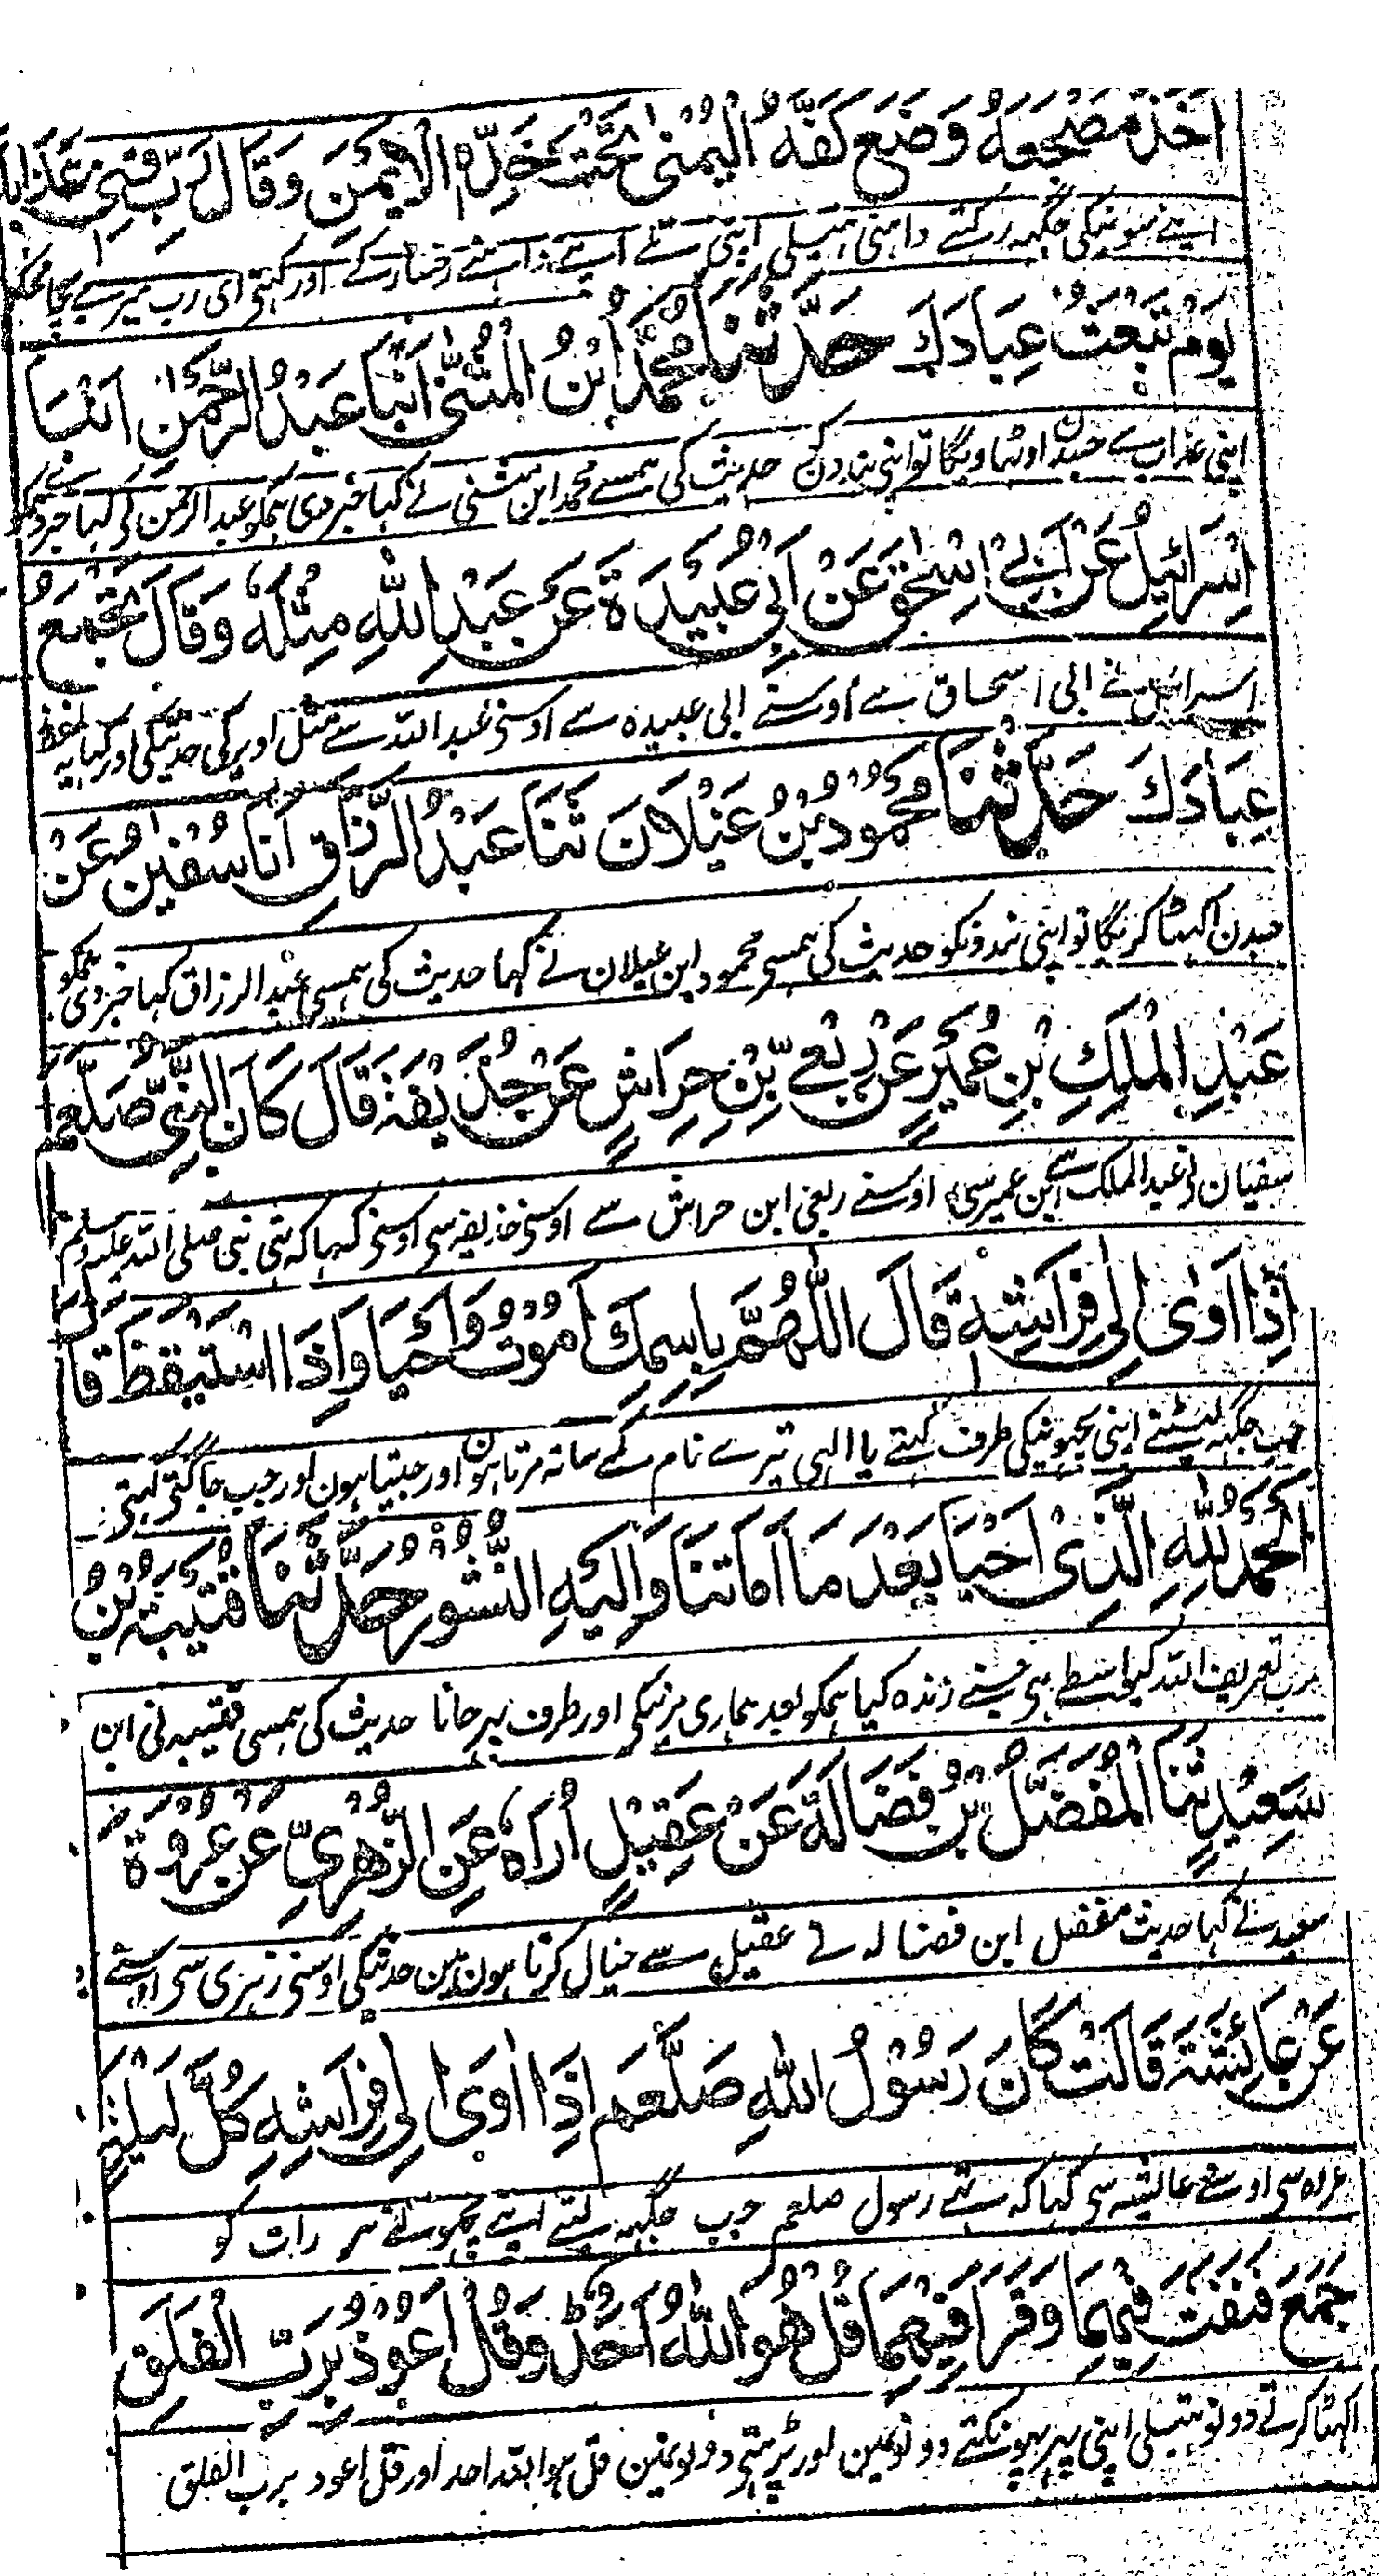 اَخَذَ مَضْجَعَهُ وَضَعَ كَفَّهُ الْيُمْنٰى تَحْتَ خَدِّهِ الْاَيْمَنِ وَقَالَ رَبِّ قِنِىْ عَذَابَكَ
اپنے سونیکی جگہہ رکہتے داہنی ہتیلی اپنی تلے اپنے داہنے رخسار کے اور کہتی ای رب میرے بچا مجکو
يَوْمَ تَبْعَثُ عِبَادَكَ حَدَّثَنَا مُحَمَّدُ ابْنُ الْمُثَنّٰى اَنْبَا عَبْدُ الرَّحْمٰنِ اَنْبَا
اپنی عذاب سے جبدن اوٹھاویگا تو اپنی بندونکو حدیث کی ہمسے محمد ابن مثنی نے کہا خبر دی ہمکو عبد الرحمن نے کہا خبر دی ہمکو
اِسْرَائِيْلُ عَنْ اَبِىْ اِسْحٰقَ عَنْ اَبِىْ عُبَيْدَةَ عَنْ عَبْدِ اللّٰهِ مِثْلَهٗ وَقَالَ تَجْمَعُ
اسرائیل نے ابی اسحاق سے اوسنے ابی عبیدہ سے اوسنی عبد اللہ سے مثل اوپر کی حدیثکی اور کہا یہ لفظ
عِبَادَكَ حَدَّثَنَا مَحْمُوْدُ بْنُ غَيْلَانَ ثَنَا عَبْدُ الرَّزَّاقِ اَنَا سُفْيٰنُ عَنْ
جبدن اکہٹا کریگا تو اپنی بندونکو حدیث کی ہمسی محمود ابن غیلان نے کہا حدیث کی ہمسی عبد الرزاق کہا خبر دی ہمکو
عَبْدِ الْمَلِكِ بْنِ عُمَيْرٍ عَنْ رِبْعِىِّ بْنِ حِرَاشٍ عَنْ حُذَيْفَةَ قَالَ كَانَ النَّبِىُّ صَلَّعَم
سفیان نے عبد الملک سے ابن عمیر سی اوسنے ربعی ابن حراش سے اوسنی حذیفہ سی اوسنی کہا کہ تہی نبی صلی اللہ علیہ وسلم
اِذَا اَوٰى اِلٰى فِرَاشِهٖ قَالَ اللّٰهُمَّ بِاسْمِكَ اَمُوْتُ وَاَحْيَا وَاِذَا اسْتَيْقَظَ قَالَ
جب جگہہ لیٹتے اپنی بچہونیکی طرف کہتے یا الہی تیرے نام کے ساتہ مرتا ہون اور جیتا ہون اور جب جاگتی کہتی
اَلْحَمْدُ لِلّٰهِ الَّذِىْ اَحْيَانَا بَعْدَ مَا اَمَاتَنَا وَاِلَيْهِ النُّشُوْرُ حَدَّثَنَا قُتَيْبَةُ بْنُ
سب تعریف اللہ کیواسطے ہی جسنے زندہ کیا ہمکو بعد ہماری مرنیکی اور طرف پہر جانا حدیث کی ہمسی قتیبہ نی ابن
سَعِيْدٍ ثَنَا الْمُفَضَّلُ بْنُ فَضَالَةَ عَنْ عَقِيْلٍ اُرَاهُ عَنِ الزُّهْرِىِّ عَنْ عُرْوَةَ
سعید نے کہا حدیث مفضل ابن فضالہ نے عقیل سے خیال کرتا ہون مین حدیثکی اوسنی زہری سی اوسنے
عَنْ عَائِشَةَ قَالَتْ كَانَ رَسُوْلُ اللّٰهِ صَلَّعَم اِذَا اَوٰى اِلٰى فِرَاشِهٖ كُلَّ لَيْلَةٍ
عروہ سی اوسنے عائشہ سی کہا کہ تہے رسول صلعم جب جگہہ لیتے اپنے بچہونے ہر رات کو
جَمَعَ فَنَفَثَ فِيْهِمَا وَقَرَاَ فِيْهِمَا قُلْ هُوَ اللّٰهُ اَحَدٌ وَقُلْ اَعُوْذُ بِرَبِّ الْفَلَقِ
اکہٹا کرتے دونو ہتیلی اپنی پہر پہونکتے دونومین اور پڑہتی دونونمین قل ہو اللہ احد اور قل اعوذ برب الفلق